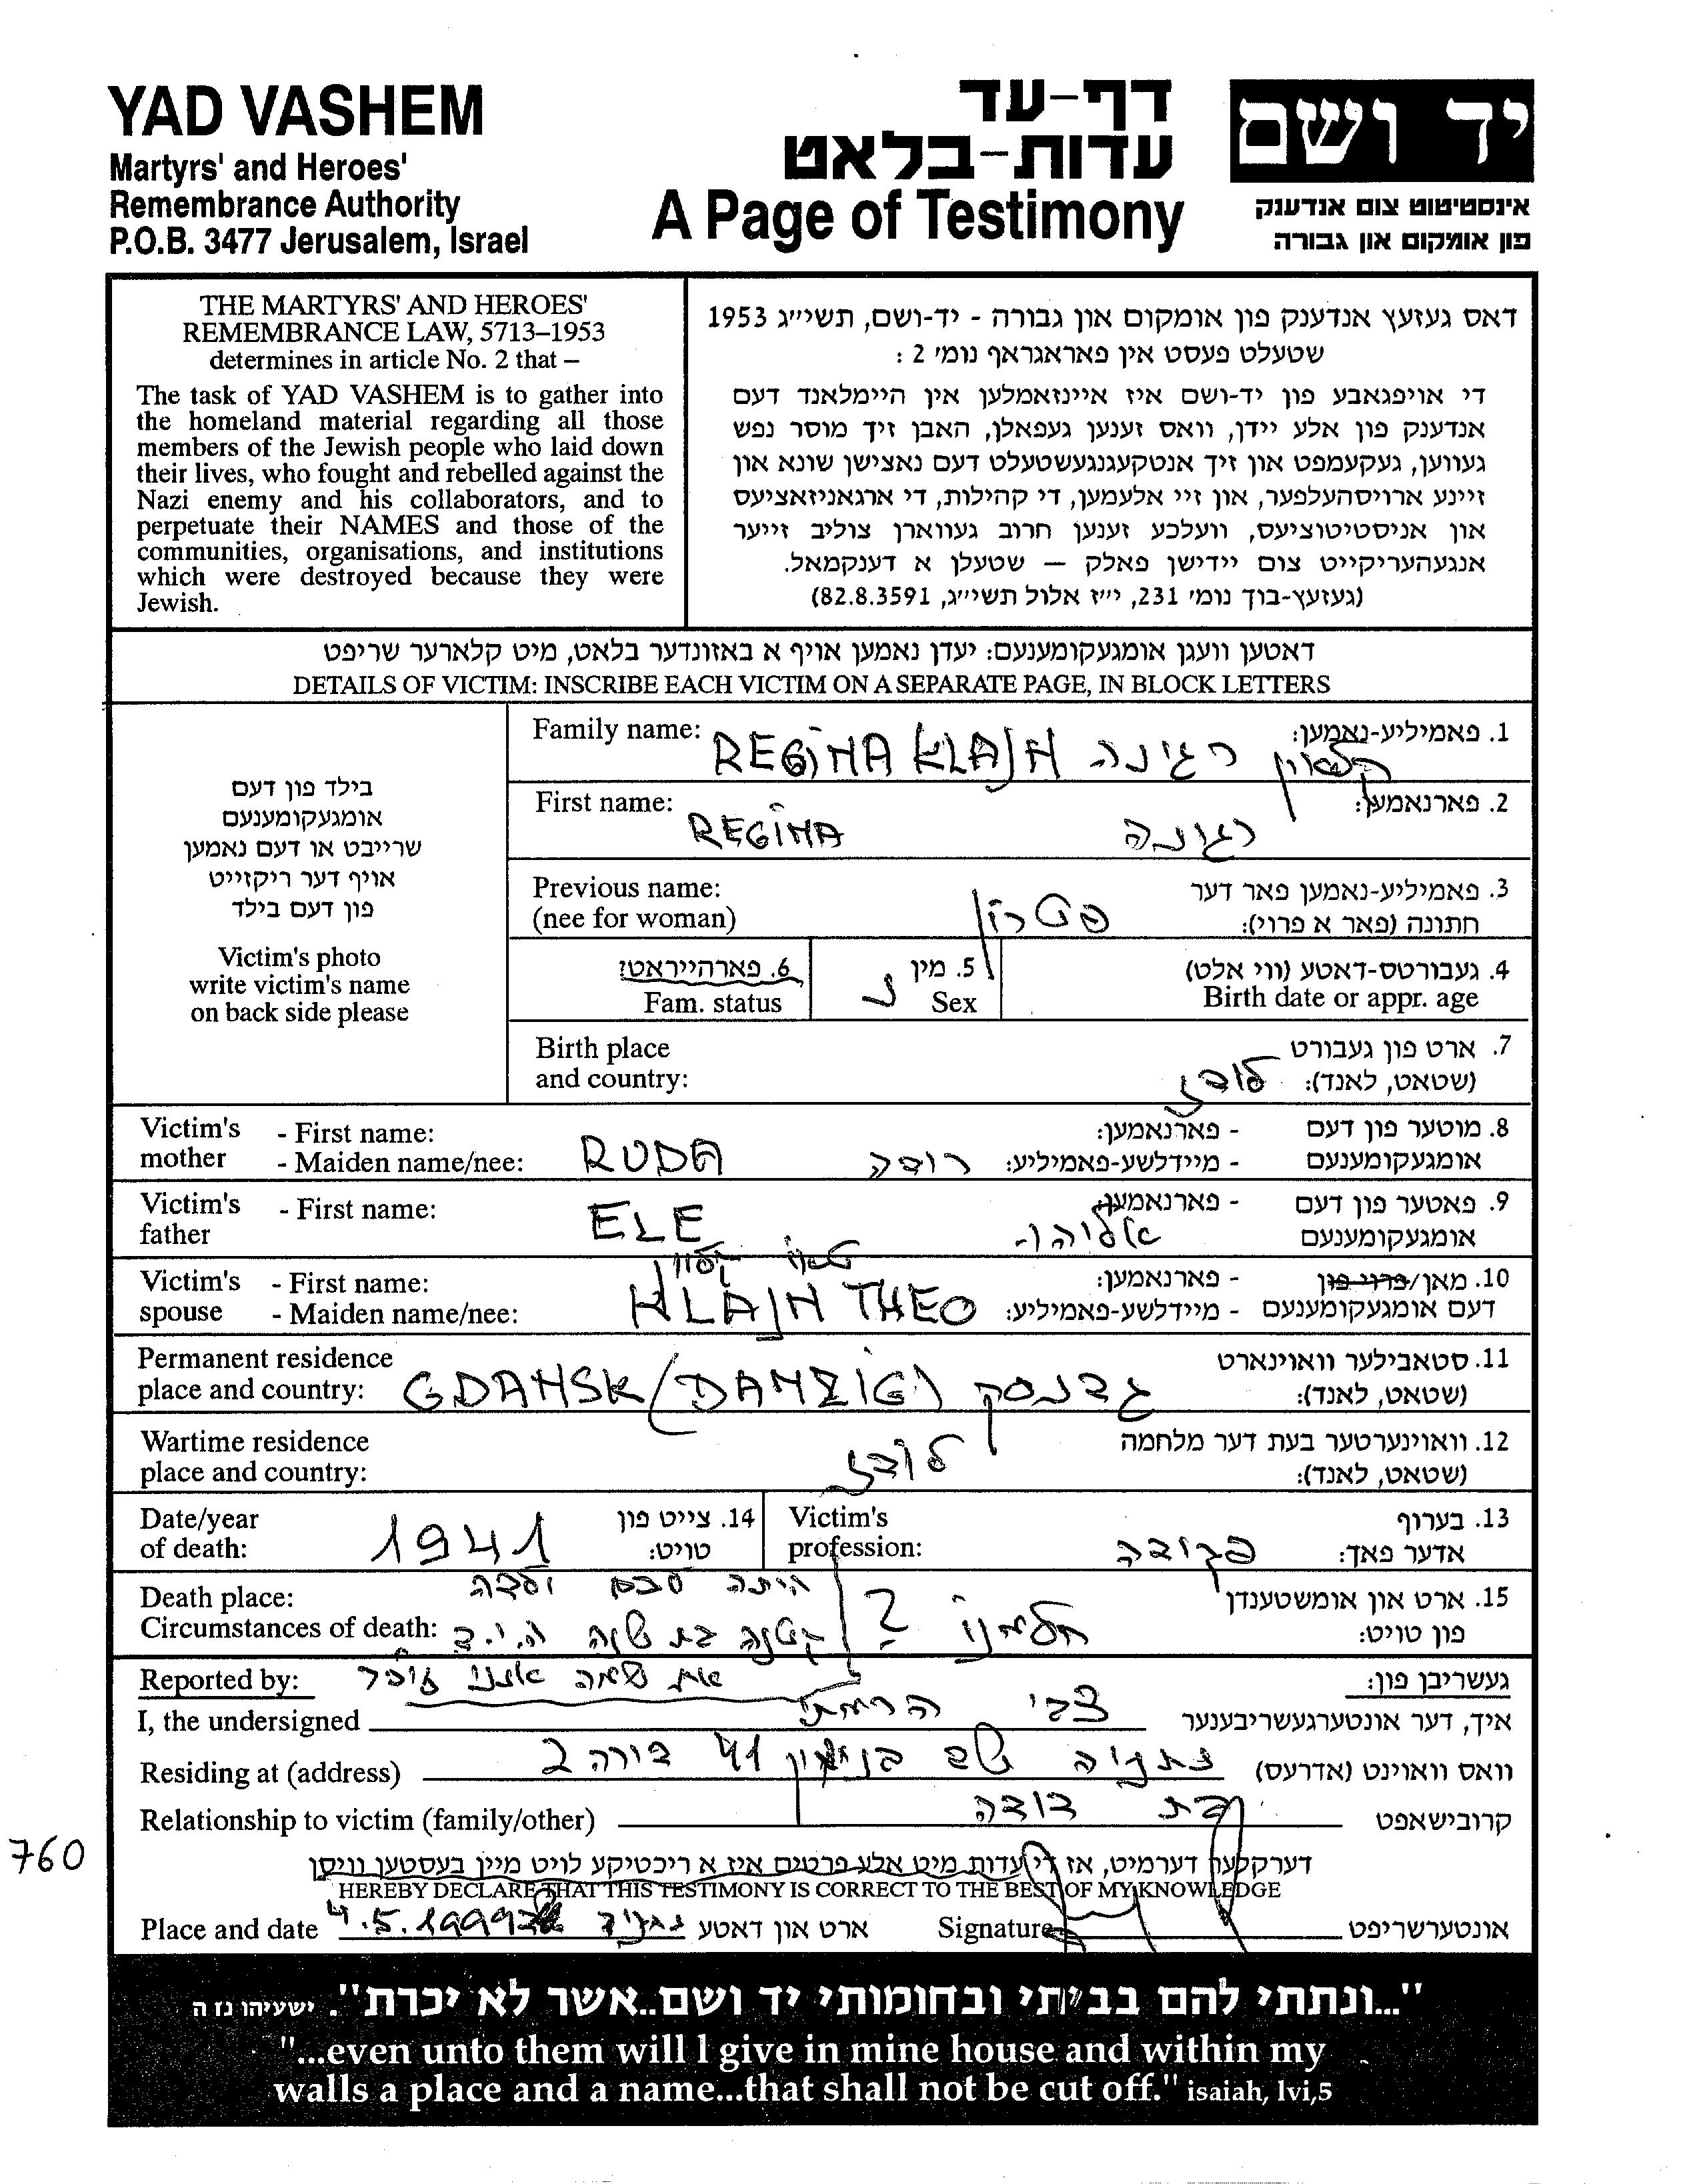 YAD VASHEM
Martyrs' and Heroes'
Remembrance Authority
P.O.B. 3477 Jerusalem, Israel
דף-עד
עדות-בלאט
A Page of Testimony
יד ושם
אינסטיטוט צום אנדענק
פון אומקום און גבורה
THE MARTYRS' AND HEROES'
REMEMBRANCE LAW, 5713–1953
determines in article No. 2 that –
The task of YAD VASHEM is to gather into
the homeland material regarding all those
members of the Jewish people who laid down
their lives, who fought and rebelled against the
Nazi enemy and his collaborators, and to
perpetuate their NAMES and those of the
communities, organisations, and institutions
which were destroyed because they were
Jewish.
דאס געזעץ אנדענק פון אומקום און גבורה - יד-ושם, תשי״ג 1953
שטעלט פעסט אין פאראגראף נומ׳ 2 :
די אויפגאבע פון יד-ושם איז איינזאמלען אין היימלאנד דעם
אנדענק פון אלע יידן, וואס זענען געפאלן, האבן זיך מוסר נפש
געווען, געקעמפט און זיך אנטקעגנגעשטעלט דעם נאצישן שונא און
זיינע ארויסהעלפער, און זיי אלעמען, די קהילות, די ארגאניזאציעס
און אניסטיטוציעס, וועלכע זענען חרוב געווארן צוליב זייער
אנגעהעריקייט צום יידישן פאלק – שטעלן א דענקמאל.
(געזעץ-בוך נומ׳ 231, י״ז אלול תשי״ג, 82.8.3591)
דאטען וועגן אומגעקומענעם: יעדן נאמען אויף א באזונדער בלאט, מיט קלארער שריפט
DETAILS OF VICTIM: INSCRIBE EACH VICTIM ON A SEPARATE PAGE, IN BLOCK LETTERS
בילד פון דעם
אומגעקומענעם
שרייבט או דעם נאמען
אויף דער ריקזייט
פון דעם בילד
Victim's photo
write victim's name
on back side please
Family name: REGINA KLAJN רגינה קליין 1. פאמיליע-נאמען:
First name: REGINA רגינה 2. פארנאמען:
Previous name: 3. פאמיליע-נאמען פאר דער
(nee for woman) חתונה (פאר א פרוי):
6. פארהייראט?
Fam. status
5. מין
נ Sex
4. געבורטס-דאטע (ווי אלט)
Birth date or appr. age
Birth place 7. ארט פון געבורט
and country: לודז (שטאט, לאנד):
Victim's - First name: - פארנאמען: 8. מוטער פון דעם
mother - Maiden name/nee: RUDA רודה - מיידלשע-פאמיליע: אומגעקומענעם
Victim's - First name: ELE אליהו - פארנאמען: 9. פאטער פון דעם
father אומגעקומענעם
Victim's - First name: קליין טאו - פארנאמען: 10. מאן/פרוי פון
spouse - Maiden name/nee: KLAJN THEO - מיידלשע-פאמיליע: דעם אומגעקומענעם
Permanent residence 11. סטאבילער וואוינארט
place and country: GDANSK (DANZIG) גדנסק (שטאט, לאנד):
Wartime residence 12. וואוינערטער בעת דער מלחמה
place and country: לודז (שטאט, לאנד):
Date/year 14. צייט פון
of death: 1941 טויט:
Victim's 13. בערוף
profession: פקידה אדער פאך:
Death place: היתה להם ילדה 15. ארט און אומשטענדן
Circumstances of death: קטנה בת שנה ה.י.ד ? חלמנו פון טויט:
Reported by: את שמה אינני זוכר געשריבן פון:
I, the undersigned צבי איך, דער אונטערגעשריבענער
Residing at (address) נתניה שב בנימין 41 דירה 2 וואס וואוינט (אדרעס)
Relationship to victim (family/other) בת דודה קרובישאפט
דערקלער דערמיט, אז די עדות מיט אלע פרטים איז א ריכטיקע לויט מיין בעסטען וויסן
HEREBY DECLARE THAT THIS TESTIMONY IS CORRECT TO THE BEST OF MY KNOWLEDGE
Place and date 4.5.1999 נתניה ארט און דאטע Signature אונטערשריפט
760
"...ונתתי להם בביתי ובחומותי יד ושם..אשר לא יכרת". ישעיהו נז ה
"...even unto them will I give in mine house and within my
walls a place and a name...that shall not be cut off." isaiah, lvi,5